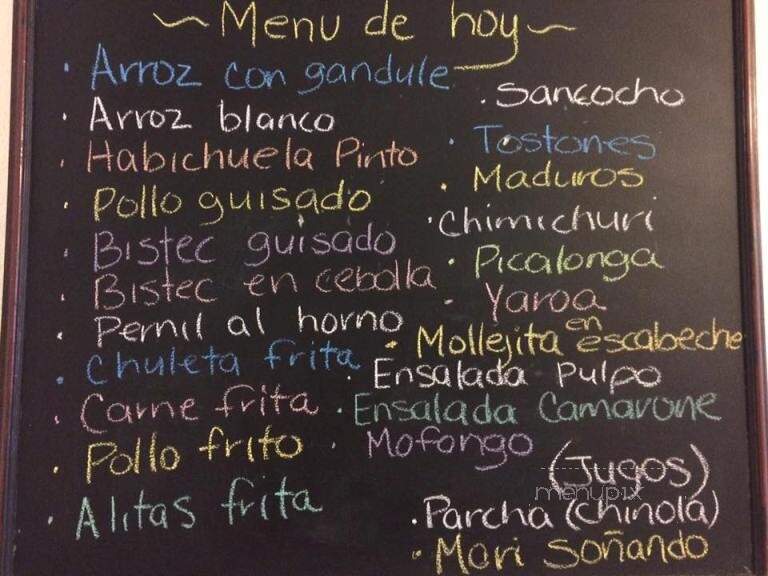 ~ Menu de hoy ~
· Arroz con gandule
· Arroz blanco
· Habichuela Pinto
· Pollo guisado
· Bistec guisado
· Bistec en cebolla
· Pernil al horno
· Chuleta frita
· Carne frita
· Pollo frito
· Alitas frita
· Sancocho
· Tostones
· Maduros
· Chimichuri
· Picalonga
· Yaroa
· Mollejita en escabeche
· Ensalada pulpo
· Ensalada Camarone
· Mofongo
(Jugos)
menupix
· Parcha (chinola)
· Mori Soñando